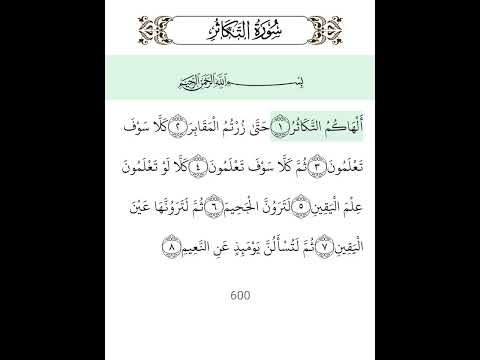 سُورَةُ التَّكَاثُرِ
بِسْمِ اللَّهِ الرَّحْمَٰنِ الرَّحِيمِ
أَلْهَاكُمُ التَّكَاثُرُ ۝١ حَتَّىٰ زُرْتُمُ الْمَقَابِرَ ۝٢ كَلَّا سَوْفَ
تَعْلَمُونَ ۝٣ ثُمَّ كَلَّا سَوْفَ تَعْلَمُونَ ۝٤ كَلَّا لَوْ تَعْلَمُونَ
عِلْمَ الْيَقِينِ ۝٥ لَتَرَوُنَّ الْجَحِيمَ ۝٦ ثُمَّ لَتَرَوُنَّهَا عَيْنَ
الْيَقِينِ ۝٧ ثُمَّ لَتُسْأَلُنَّ يَوْمَئِذٍ عَنِ النَّعِيمِ ۝٨
600